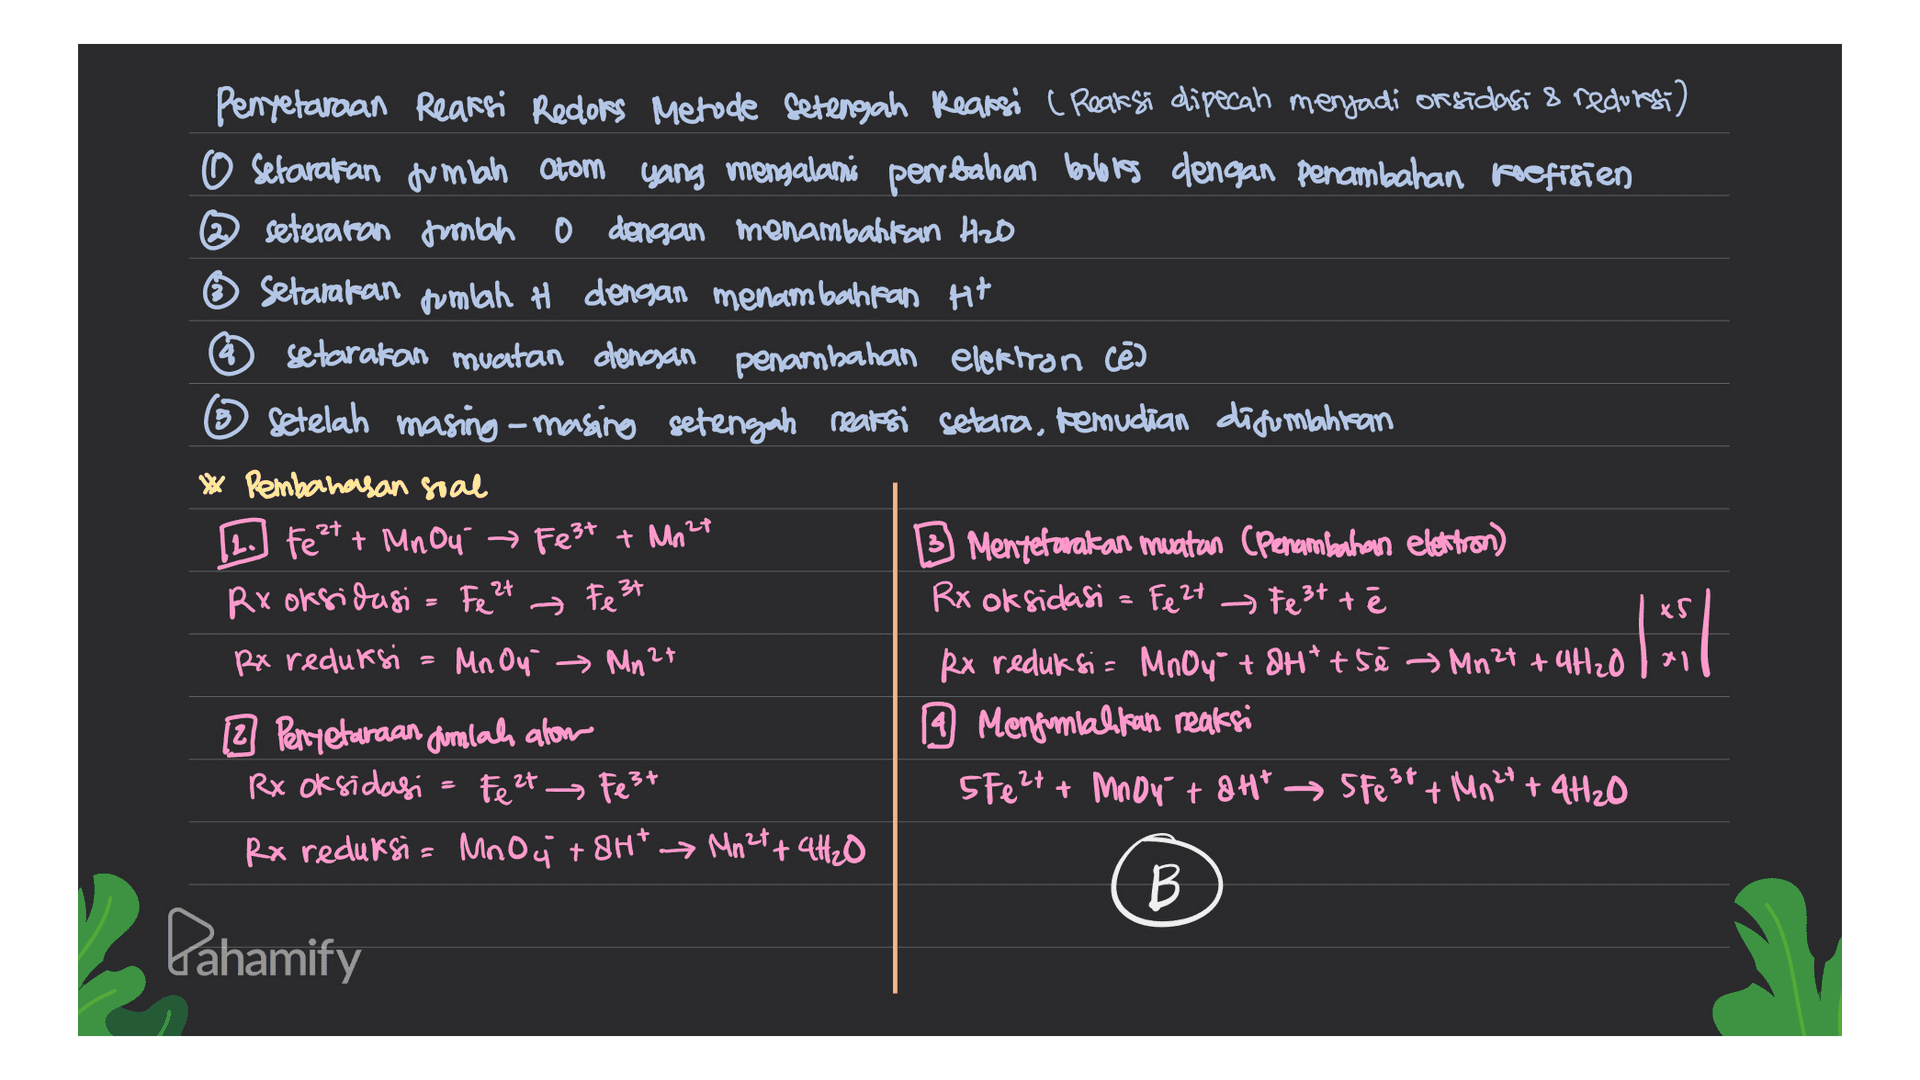 Penyetaraan Reaksi Redoks Metode Setengah Reaksi (Reaksi dipecah menjadi oksidasi & reduksi)
① Setarakan jumlah atom yang mengalami perubahan biloks dengan penambahan koefisien
② seterakan jumlah O dengan menambahkan H₂O
③ Setarakan jumlah H dengan menambahkan H⁺
④ setarakan muatan dengan penambahan elektron (ē)
⑤ Setelah masing-masing setengah reaksi setara, kemudian dijumlahkan
※ Pembahasan soal
1. Fe²⁺ + MnO₄⁻ → Fe³⁺ + Mn²⁺
Rx oksidasi = Fe²⁺ → Fe³⁺
Rx reduksi = MnO₄⁻ → Mn²⁺
2 Penyetaraan jumlah atom
Rx oksidasi = Fe²⁺ → Fe³⁺
Rx reduksi = MnO₄⁻ + 8H⁺ → Mn²⁺ + 4H₂O
3 Menyetarakan muatan (Penambahan elektron)
Rx oksidasi = Fe²⁺ → Fe³⁺ + ē | x5 |
Rx reduksi = MnO₄⁻ + 8H⁺ + 5ē → Mn²⁺ + 4H₂O | x1 |
4 Menjumlahkan reaksi
5Fe²⁺ + MnO₄⁻ + 8H⁺ → 5Fe³⁺ + Mn²⁺ + 4H₂O
B
Pahamify